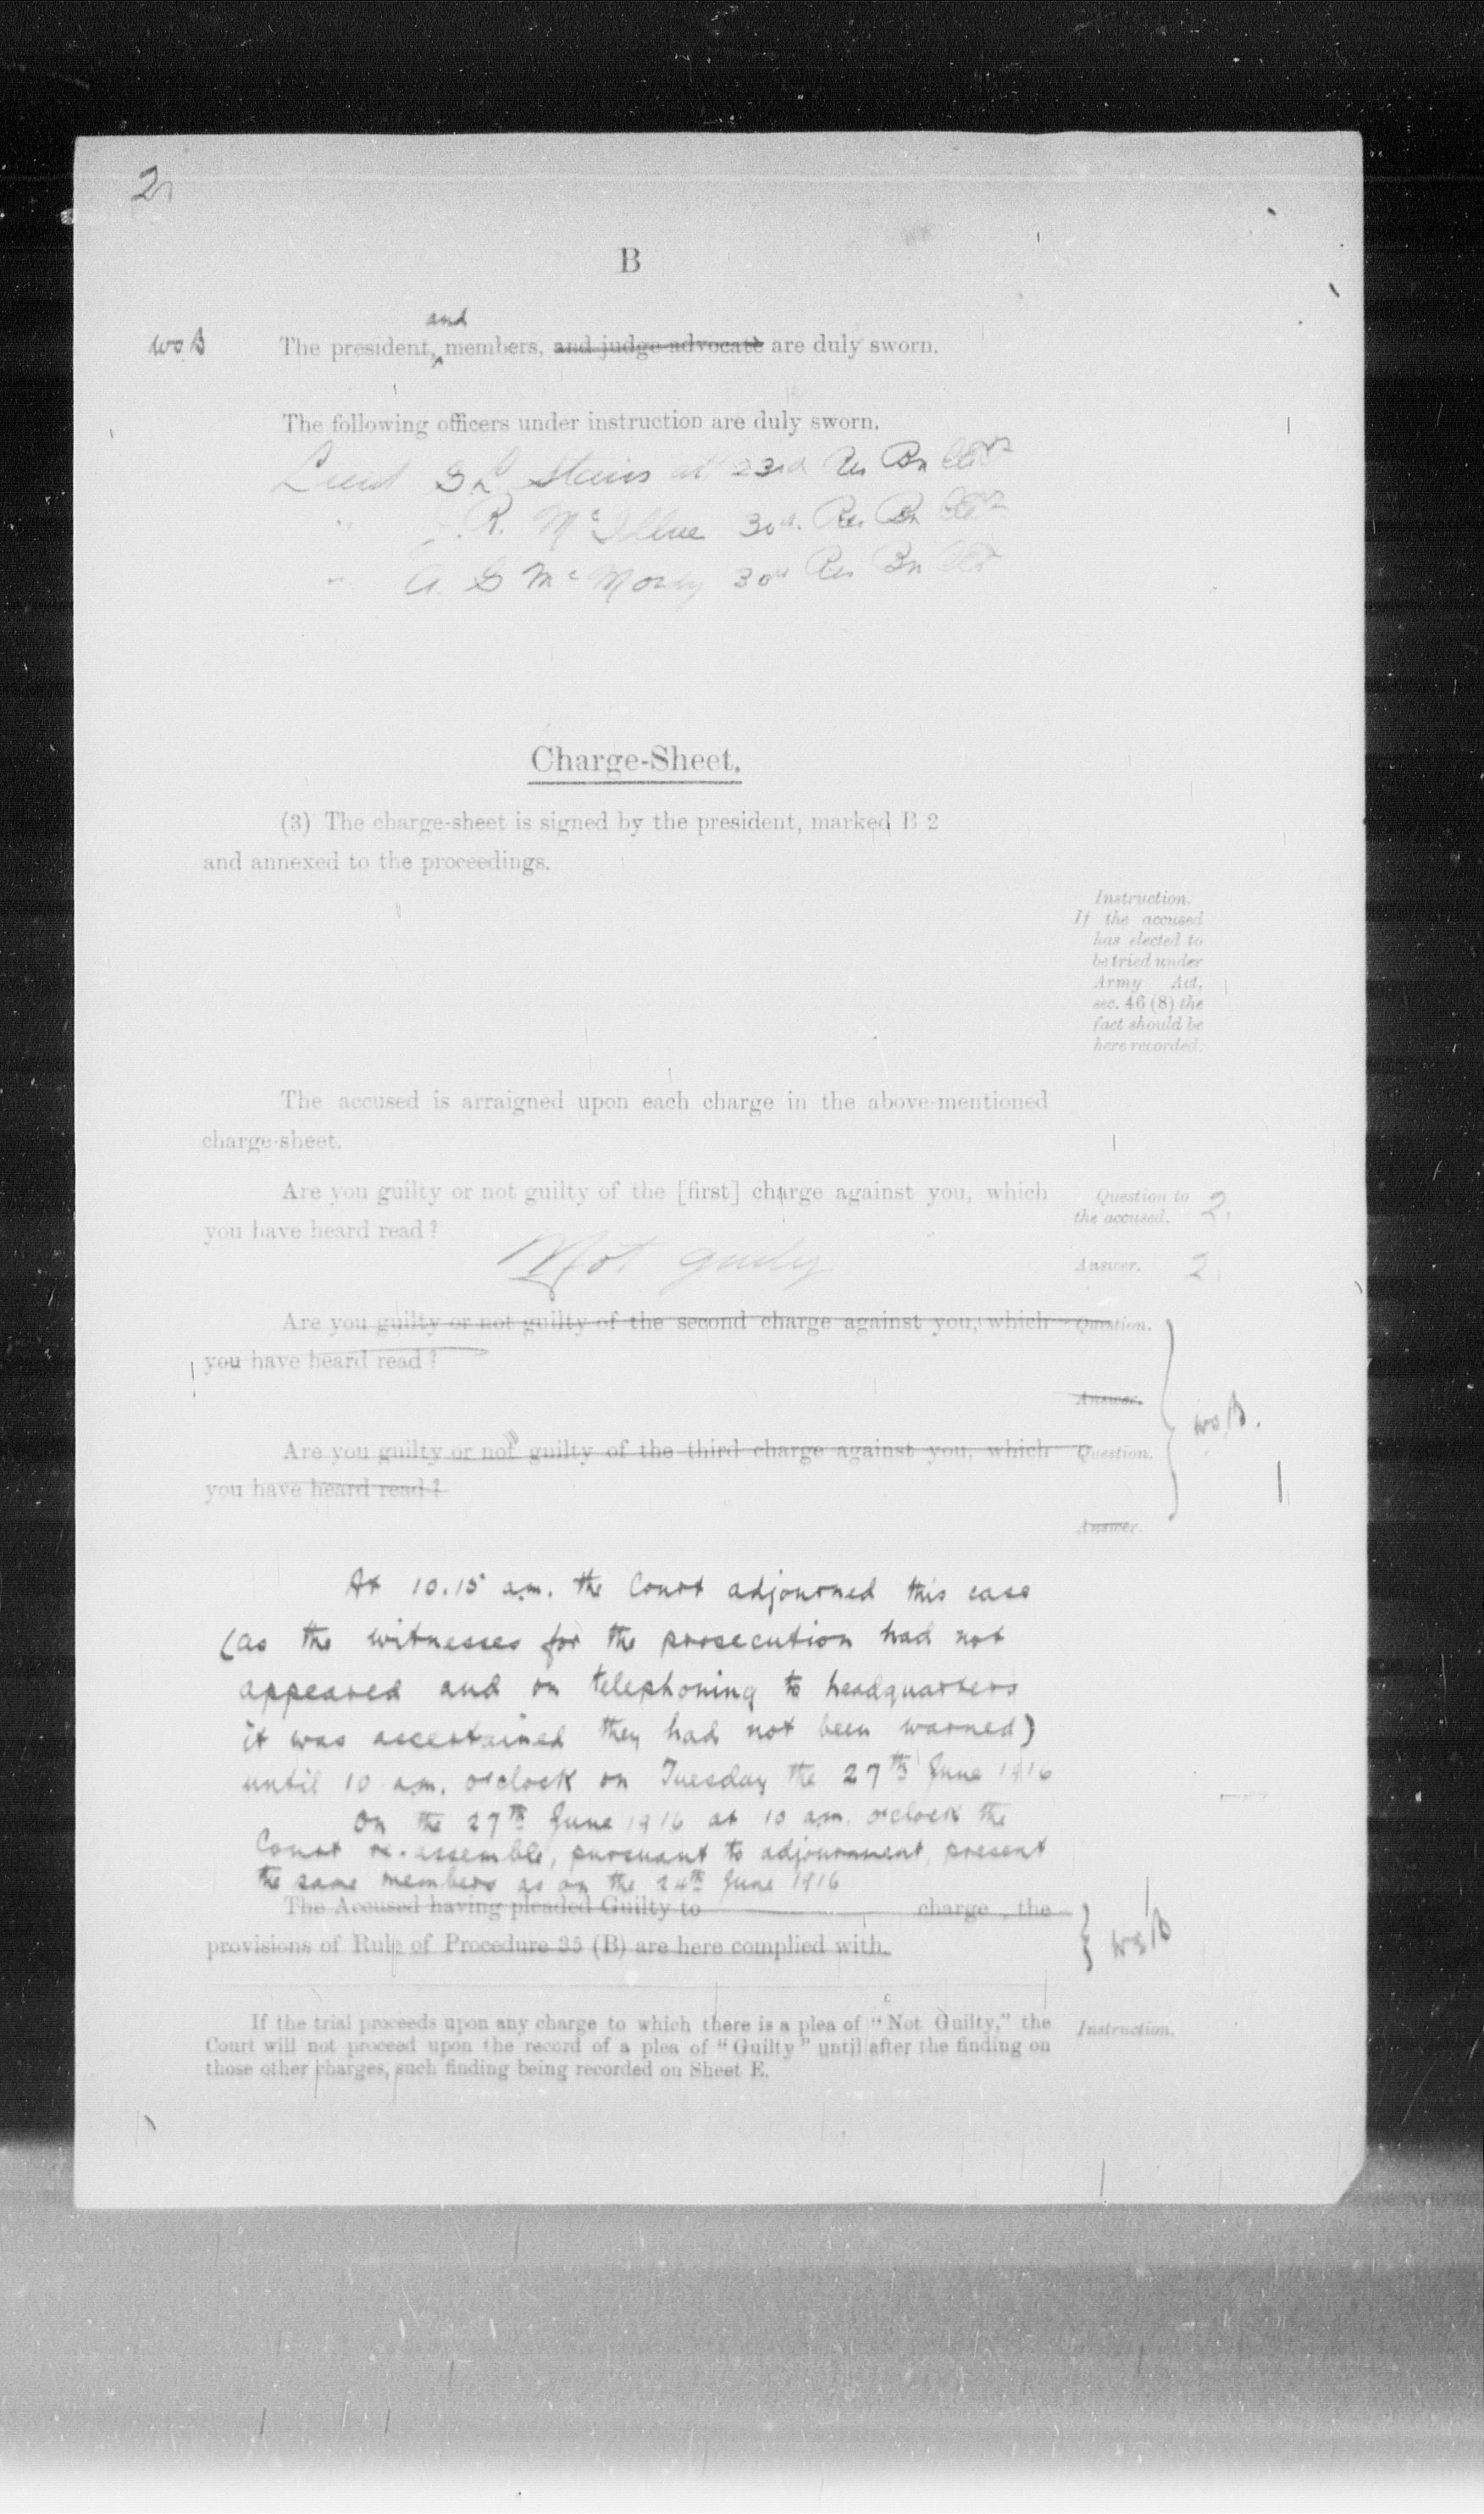 2
B
and
WSB The president, members, and judge advocate are duly sworn.
The following officers under instruction are duly sworn.
Lieut G L Stairs att 23rd Res Bn
" R. 30th Res Bn
" A. G 30th Res Bn
Charge-Sheet.
(3) The charge-sheet is signed by the president, marked B 2
and annexed to the proceedings.
Instruction.
If the accused
has elected to
be tried under
Army Act,
sec. 46 (8) the
fact should be
here recorded.
The accused is arraigned upon each charge in the above-mentioned
charge-sheet.
Are you guilty or not guilty of the [first] charge against you, which Question to 2.
you have heard read? the accused.
Not guilty Answer. 2.
Are you guilty or not guilty of the second charge against you, which Question.
you have heard read?
Answer.
WSB.
Are you guilty or not guilty of the third charge against you, which Question.
you have heard read?
Answer.
At 10.15 a.m. the Court adjourned this case
(as the witnesses for the prosecution had not
appeared and on telephoning to headquarters
it was ascertained they had not been warned)
until 10 a.m. o'clock on Tuesday the 27th June 1916
On the 27th June 1916 at 10 a.m. o'clock the
Court re-assemble, pursuant to adjournment, present
the same members as on the 24th June 1916
The Accused having pleaded Guilty to charge , the
provisions of Rule of Procedure 35 (B) are here complied with. WSB
If the trial proceeds upon any charge to which there is a plea of "Not Guilty," the Instruction.
Court will not proceed upon the record of a plea of "Guilty" until after the finding on
those other charges, such finding being recorded on Sheet E.